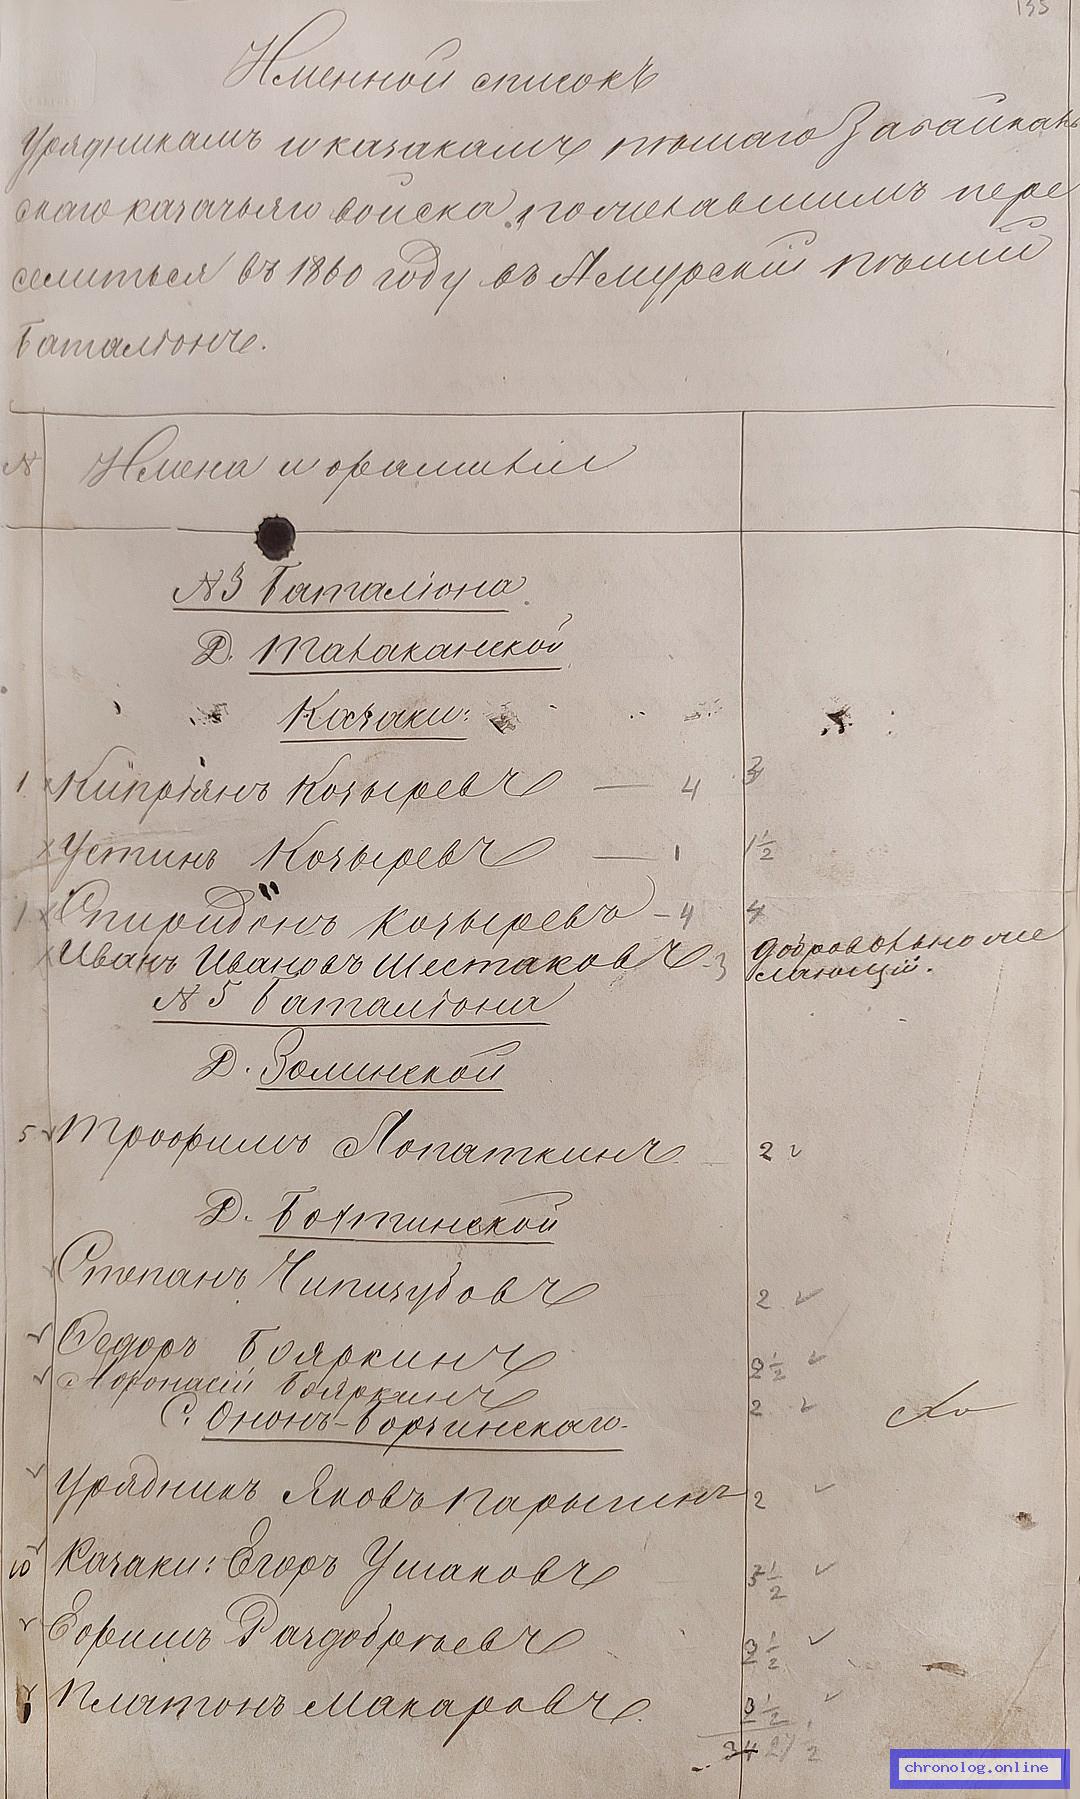 135
Именной списокъ
Урядникамъ и казакамъ пѣшаго Забайкаль
скаго казачьяго войска, пожелавшимъ пере
селиться въ 1860 году въ Амурскій пѣшій
баталіонъ.
№ Имена и фамиліи
№ 3 Баталіона
Д. Манаканской
Казаки:
1 Кипріянъ Козыревъ — 4 3
Устинъ Козыревъ — 1 1 1/2
1 Спиридонъ Козыревъ — 4 4
Иванъ Ивановъ Шестаковъ - 3 Добровольно же
лающій.
№ 5 Баталіона
Д. Зоминской
5 Трофимъ Лопаткинъ 2
Д. Бочтинской
Степанъ Чипизубовъ 2
Федоръ Бояркинъ 2 1/2
Афонасій Бояркинъ 2
С. Ононъ-Борзинскаго
Урядникъ Яковъ Парыгинъ 2
10 Казаки: Егоръ Ушаковъ 3 1/2
Ефимъ Раздобрѣевъ 3 1/2
Платонъ Макаровъ 3 1/2
34 27 1/2
chronolog.online